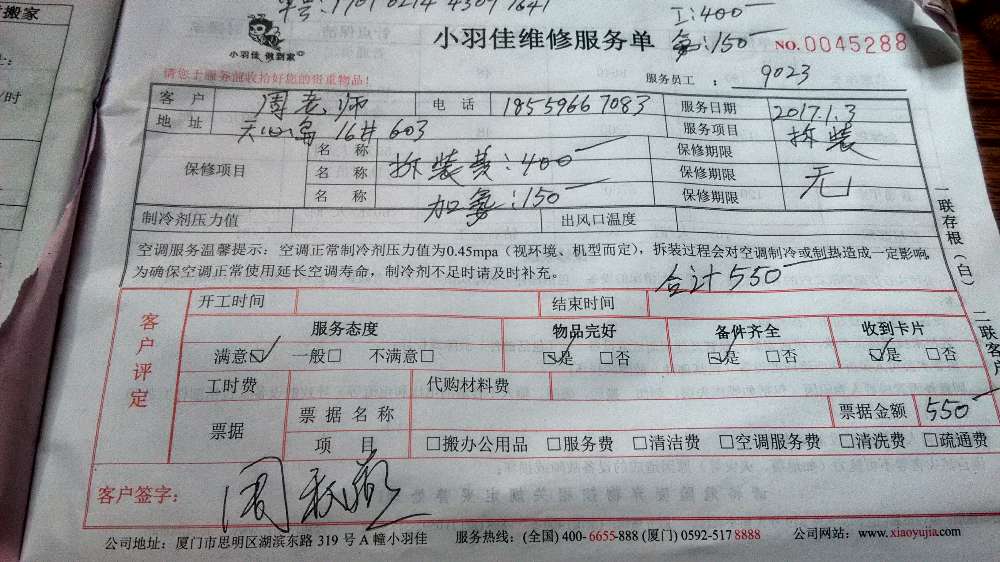 搬家
I:400
小羽佳 做到家
小羽佳维修服务单
氟:150
NO.0045288
请您于服务前收拾好您的贵重物品!
服务员工 : 9023
客 户 周老师 电 话 18559667083 服务日期 2017.1.3
地 址 天心岛 16# 603 服务项目 拆装
保修项目
名 称 拆装费:400 保修期限
名 称 加氟:150 保修期限 无
名 称 保修期限
制冷剂压力值 出风口温度
空调服务温馨提示:空调正常制冷剂压力值为0.45mpa(视环境、机型而定),拆装过程会对空调制冷或制热造成一定影响,
为确保空调正常使用延长空调寿命,制冷剂不足时请及时补充。
合计550
一联存根(白)
二联客户
客户评定
开工时间 结束时间
服务态度 物品完好 备件齐全 收到卡片
满意☑ 一般□ 不满意□ ☑是 □否 ☑是 □否 ☑是 □否
工时费 代购材料费
票据 票据名称 票据金额 550
项 目 □搬办公用品 □服务费 □清洁费 □空调服务费 □清洗费 □疏通费
客户签字:
公司地址:厦门市思明区湖滨东路 319 号 A 幢小羽佳 服务热线:(全国) 400-6655-888 (厦门) 0592-517 8888 公司网站:www.xiaoyujia.com